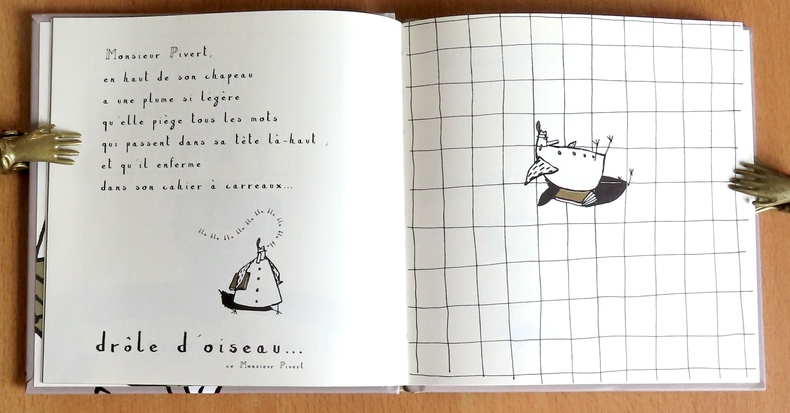 Monsieur Pivert,
en haut de son chapeau
a une plume si légère
qu'elle piège tous les mots
qui passent dans sa tête là-haut ,
et qu'il enferme
dans son cahier à carreaux...
drôle d'oiseau...
ce Monsieur Pivert